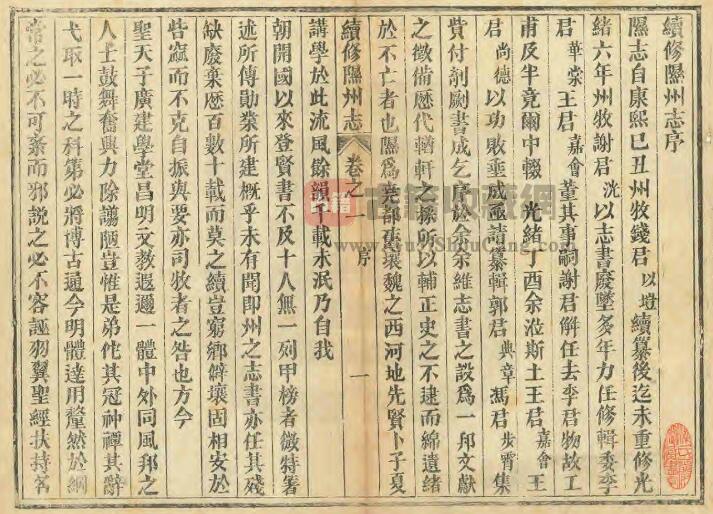 續修隰州志序
隰志自康熙己丑州牧錢君以塏續纂後迄未重修光
緒六年州牧謝君洸以志書廢墜多年力任修輯委李
君華棠王君嘉會董其事嗣謝君解任去李君物故工
甫及半竟爾中輟光緒丁酉余涖斯土王君嘉會王
君尚德以功敗垂成亟請纂輯郭君典章馮君步霄集
貲付剞劂書成乞序於余余維志書之設爲一邦文獻
之徵備歷代輶軒之採所以輔正史之不逮而綿遺緒
於不亡者也隰爲堯都舊壤魏之西河地先賢卜子夏
續修隰州志 卷之一 序 一
講學於此流風餘韻千載未泯乃自我
朝開國以來登賢書不及十人無一列甲榜者微特著
述所傳勛業所建概乎未有聞即州之志書亦任其殘
缺廢棄歷百數十載而莫之續豈窮鄉僻壤固相安於
呰窳而不克自振與要亦司牧者之咎也方今
聖天子廣建學堂昌明文教遐邇一體中外同風邦之
人士鼓舞奮興力除譾陋豈惟是弟佗其冠神禫其辭
弋取一時之科第必將博古通今明體達用釐然於綱
常之必不可紊而邪說之必不容誣羽翼聖經扶持名
古籍收藏網
www.GuJiShouCang.com